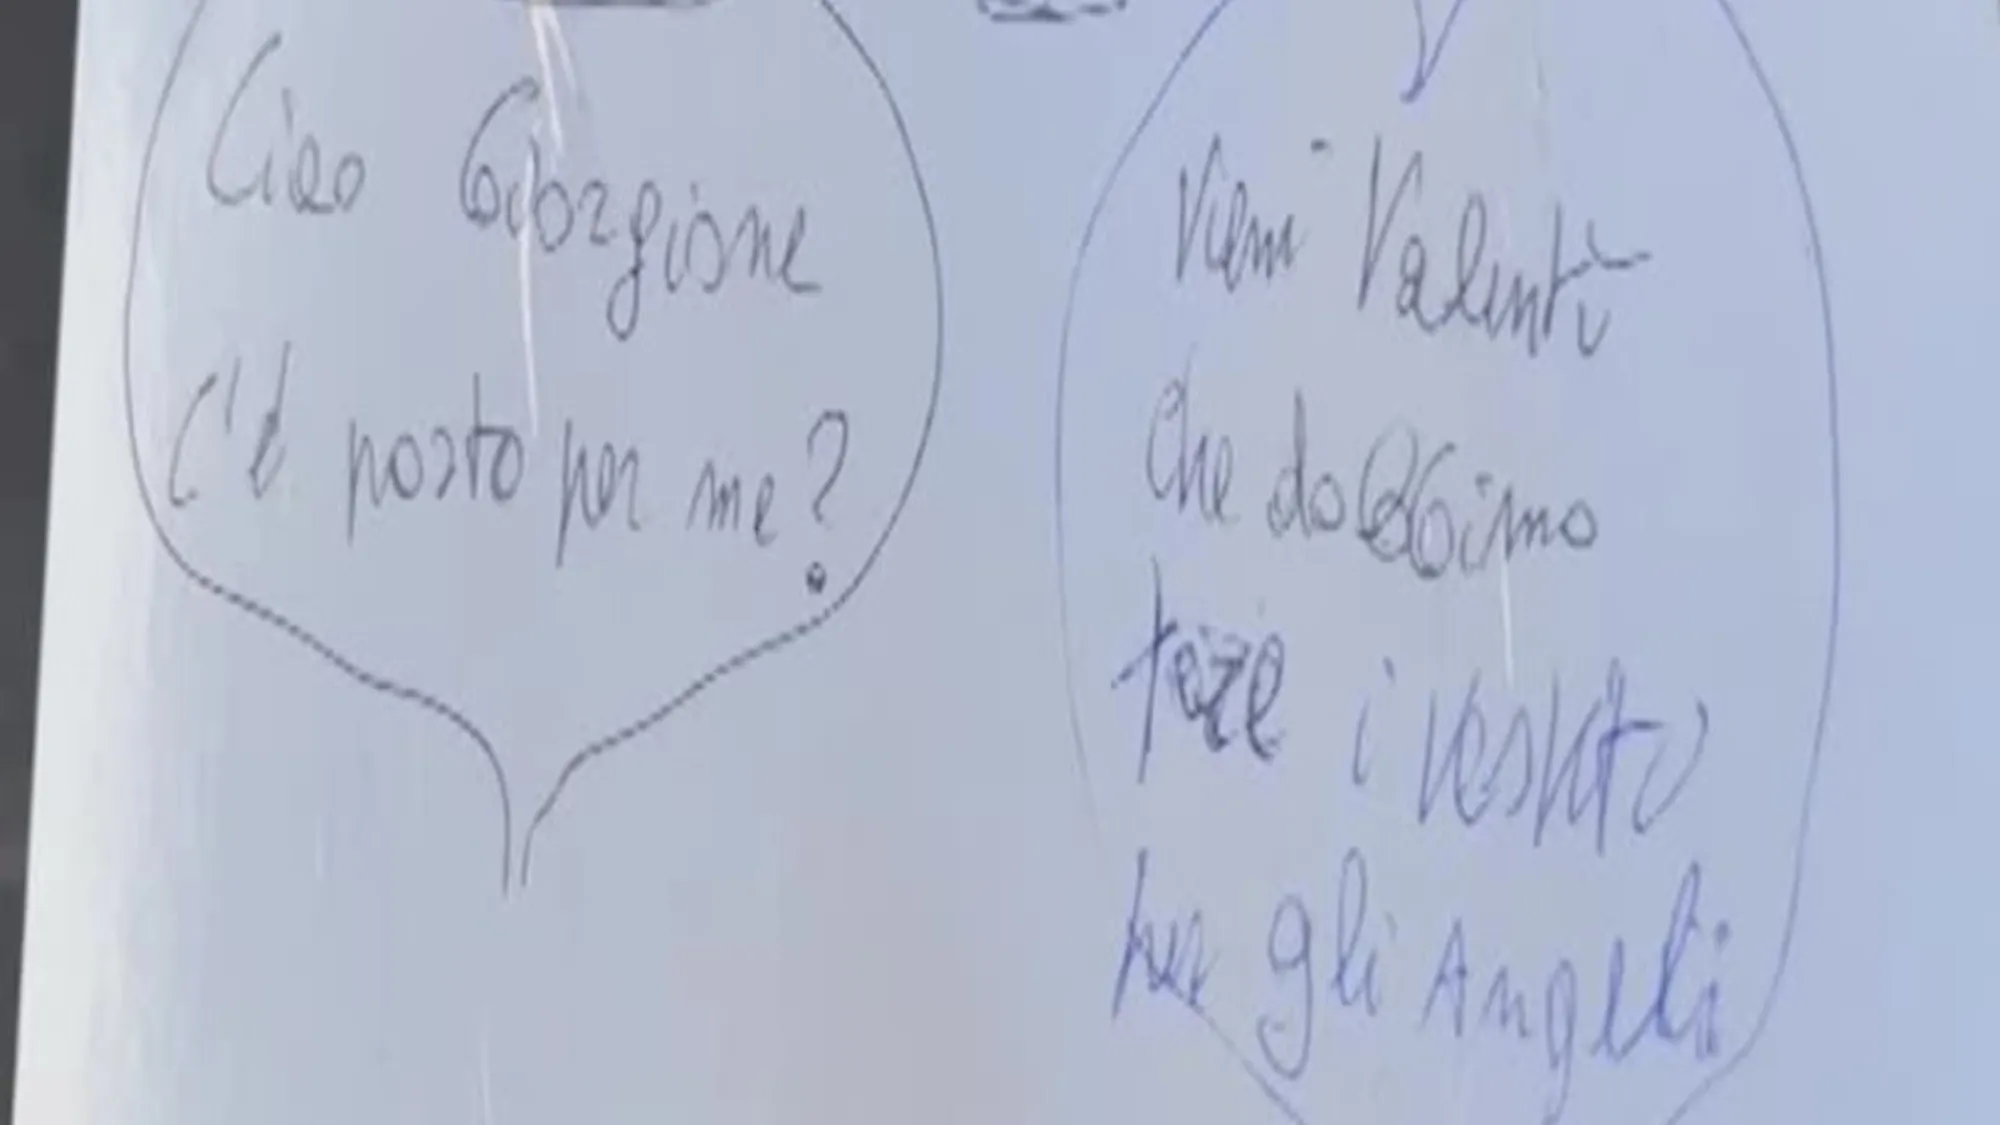 Ciao Giorgione
C'è posto per me?
Vieni Valentì
che dobbiamo
fare i vestiti
per gli Angeli